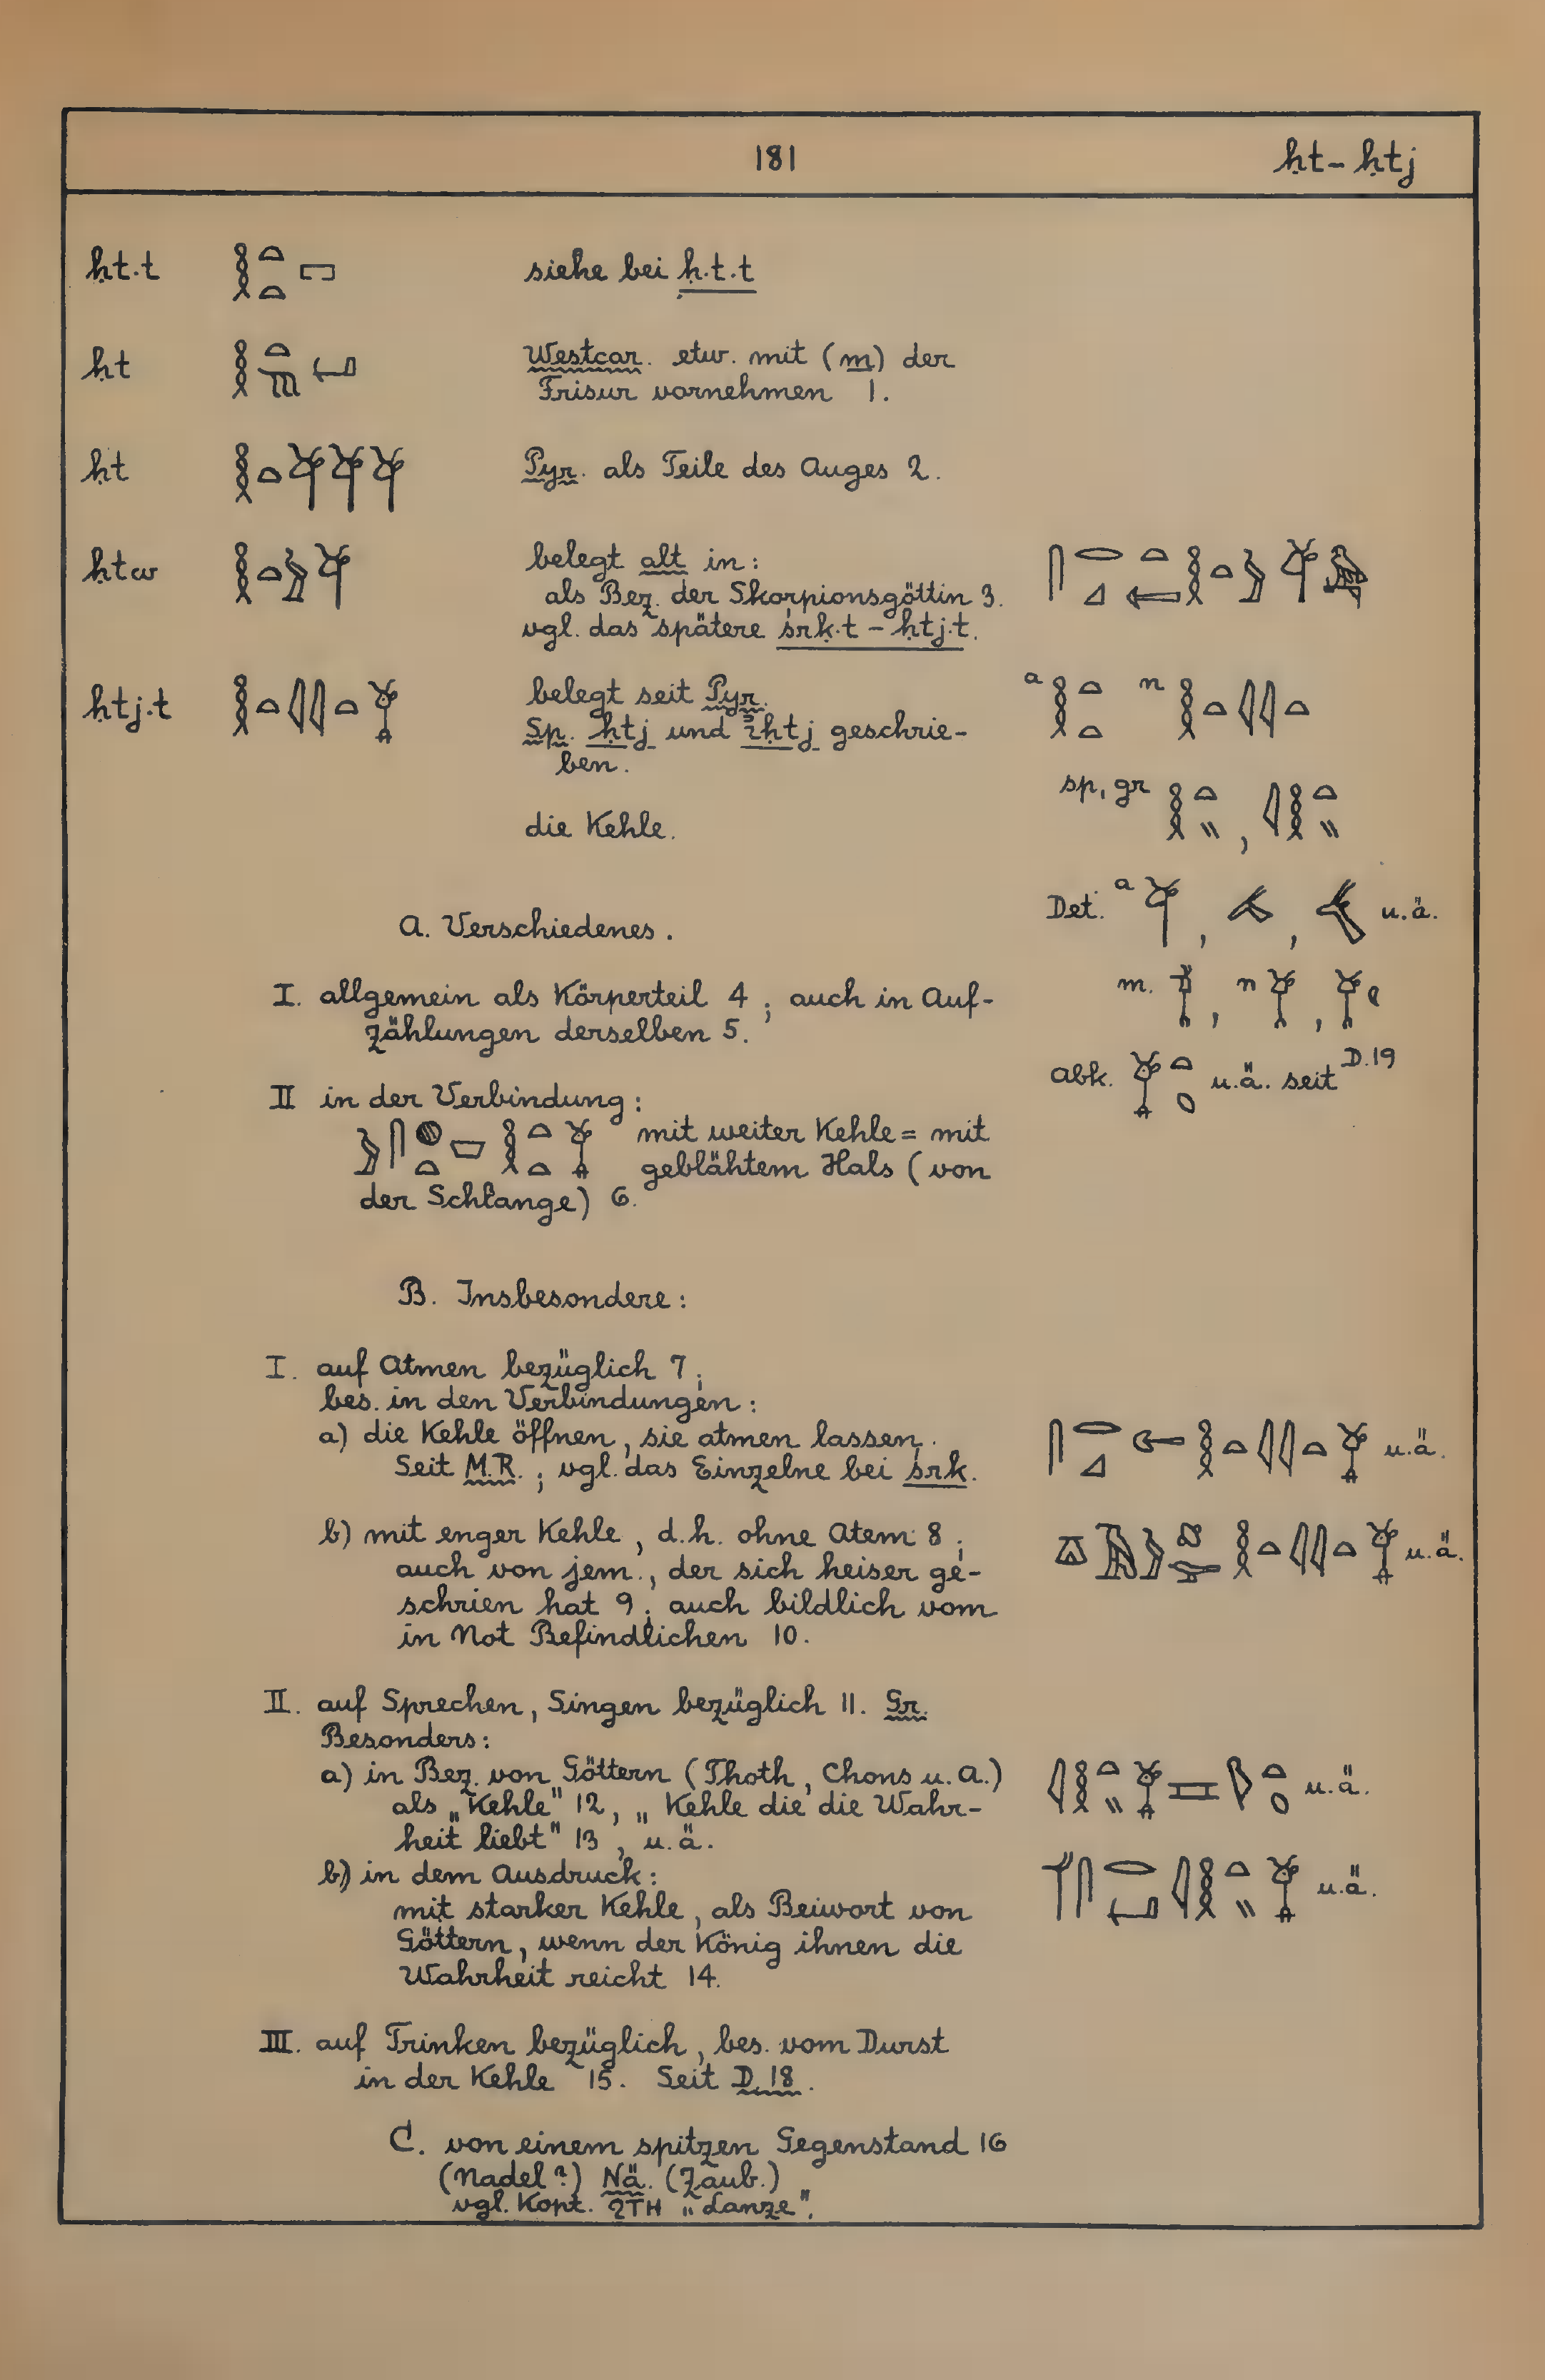 181 ḥt-ḥtj
ḥt.t siehe bei ḥ.t.t
ḥt Westcar. etw. mit (m) der
Frisur vornehmen 1.
ḥt Pyr. als Teile des Auges 2.
ḥtw belegt alt in:
als Bez. der Skorpionsgöttin 3.
vgl. das spätere śrḳ.t - ḥtj.t.
ḥtj.t belegt seit Pyr. a n
Sp. ḥtj und iḥtj geschrie-
ben.
sp, gr ,
die Kehle.
Det. a , , u.ä.
A. Verschiedenes.
I. allgemein als Körperteil 4; auch in Auf- m. , n ,
zählungen derselben 5.
Abk. u.ä. seit D.19
II in der Verbindung:
mit weiter Kehle = mit
geblähtem Hals (von
der Schlange) 6.
B. Insbesondere:
I. auf Atmen bezüglich 7;
bes. in den Verbindungen:
a) die Kehle öffnen, sie atmen lassen. u.ä.
Seit M.R.; vgl. das Einzelne bei śrḳ.
b) mit enger Kehle, d.h. ohne Atem 8; u.ä.
auch von jem., der sich heiser ge-
schrien hat 9; auch bildlich vom
in Not Befindlichen 10.
II. auf Sprechen, Singen bezüglich 11. Gr.
Besonders:
a) in Bez. von Göttern (Thoth, Chons u. A.) u.ä.
als „Kehle" 12, „Kehle die die Wahr-
heit liebt" 13, u.ä.
b) in dem Ausdruck: u.ä.
mit starker Kehle, als Beiwort von
Göttern, wenn der König ihnen die
Wahrheit reicht 14.
III. auf Trinken bezüglich, bes. vom Durst
in der Kehle 15. Seit D.18.
C. von einem spitzen Gegenstand 16
(Nadel?) Nä. (Zaub.)
vgl. Kopt. ϩⲧⲏ „Lanze".